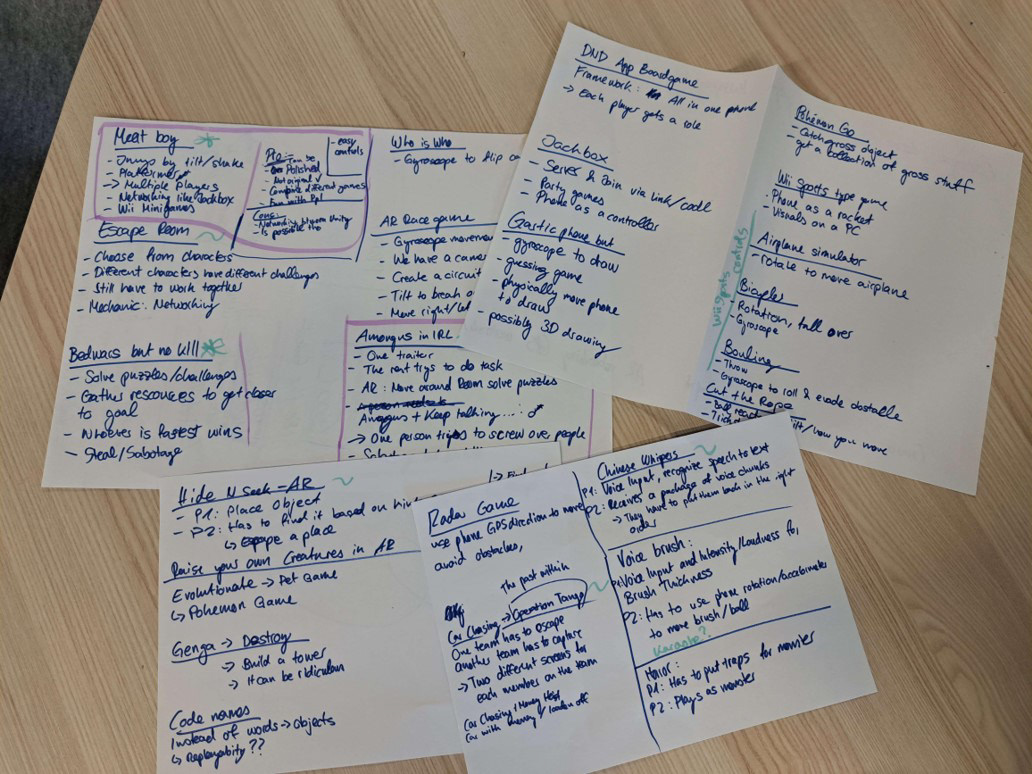 Meat boy
- Jump by tilt/shake
- Platformer
-> Multiple Players
- Networking like Jackbox
- Wii Minigames
Pro:
- can be Polished
- Combine different games
- Fun with Ppl
- easy controls
Cons:
- Is possible tho
Escape Room
- Choose from characters
- Different characters have different challenges
- Still have to work together
- Mechanic: Networking
Bedwars but no kill
- Solve puzzles/challenges
- Gather resources to get closer to goal
- Whoever is fastest wins
- Steal/Sabotage
Who is Who
- Gyroscope to flip
AR Race game
- Gyroscope movement
- We have a camer
- Create a circuit
- Tilt to break o
- Move right/left
Amongus in IRL
- One traitor
- The rest trys to do task
- AR: Move around Room solve puzzles
Amogus + Keep talking ...
-> One person tries to screw over people
DND App Boardgame
Framework: All in one phone
-> Each player gets a role
Jackbox
- Server & Join via link/code
- Party games
- Phone as a controller
Gartic phone but
- gyroscope to draw
- guessing game
- physically move phone
to draw
- possibly 3D drawing
Pokémon Go
- Catch gross object
get a collection of gross stuff
Wii Sports type game
- Phone as a racket
- Visuals on a PC
Wii sports controls
Airplane simulator
- rotate to move airplane
Bicycle
- Rotation, fall over
- Gyroscope
Bowling
- Throw
- Gyroscope to roll & evade obstacle
Cut the Rope
tilt/how you move
Hide N Seek - AR
- P1: Place Object
- P2: Has to find it based on hin
↳ Escape a place
Raise your own Creatures in AR
Evolutionate -> Pet Game
↳ Pokemon Game
Genga -> Destroy
-> Build a tower
-> It can be ridiculous
Code names
Instead of words -> Objects
↳ Replayability ??
Radar Game
use phone GPS direction to move
avoid obstacles,
The past within
Car Chasing -> Operation Tango
One team has to escape
another team has to capture
-> Two different screens for
each member on the team
Car Chasing / Money Heist
Chinese Whispers
P1: Voice Input, recognize speech to text
P2: Receives a package of voice chunks
-> They have to put them back in the right
order
Voice brush:
P1: Voice Input and Intensity/Loudness for
Brush Thickness
P2: Has to use phone rotation/accelerometer
to move brush/ball
Karaoke?
Horror:
P1: Has to put traps for monster
P2: Plays as monster